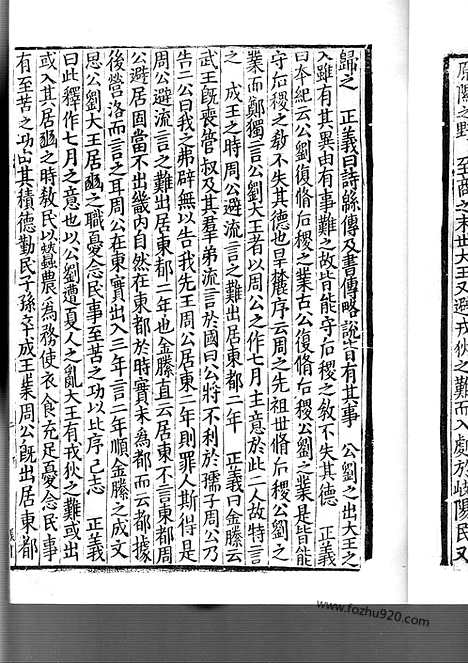 原隰之野 至商之末世大王又避戎狄之難而入處於岐陽民又
歸之 正義曰詩緜傳及書傳略說皆有其事 公劉之出大王之
入雖有其異由有事難之故皆能守后稷之敎不失其德 正義
曰本紀云公劉復脩后稷之業是皆能
守后稷之敎不失其德也旱麓序云周之先祖世脩后稷公劉之
業而鄭獨言公劉大王者以周公之作七月主意於此二人故特言
之 成王之時周公避流言之難出居東都二年 正義曰金縢云
武王旣喪管叔及其羣弟流言於國曰公將不利於孺子周公乃
告二公曰我之弗辟無以告我先王周公居東二年則罪人斯得是
周公避流言之難出居東都二年也金縢直云居東不言東都周
公避居固當不出畿內自然在東都於時實未爲都而云都據
後營洛而言之耳周公在東實出入三年言二年順金縢之成文
思公劉大王居豳之職憂念民事至苦之功以比序己志 正義
曰此釋作七月之意也以公劉遭夏人之亂大王有戎狄之難或出
或入其居豳之時敎民以蠶農爲務使衣食充足憂念民事
有至苦之功由其積德勤民子孫卒成王業周公旣出居東都
www.fozhu920.com